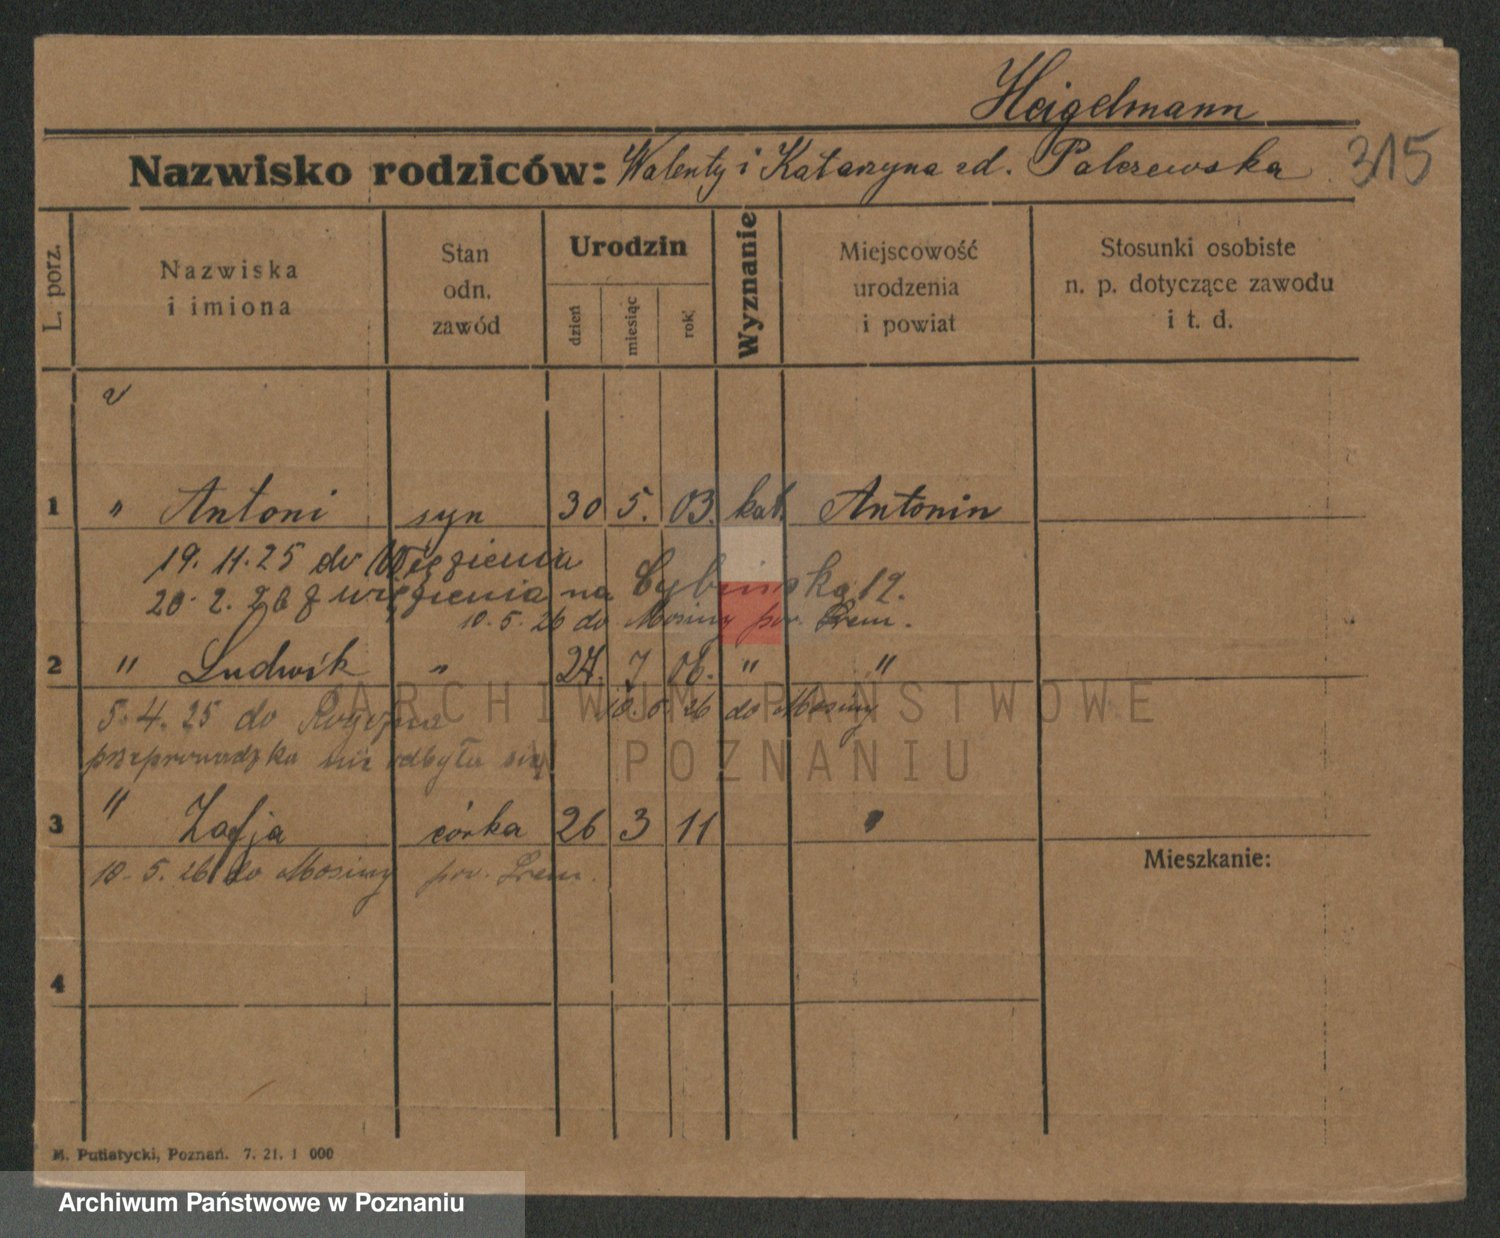 Heigelmann
Nazwisko rodziców: Walenty i Katarzyna zd. Palczewska 315
L. porz.
Nazwiska
i imiona
Stan
odn.
zawód
Urodzin
dzień
miesiąc
rok
Wyznanie
Miejscowość
urodzenia
i powiat
Stosunki osobiste
n. p. dotyczące zawodu
i t. d.
1 " Antoni syn 30 5. 03. kat. Antonin
19. 11. 25 do Więzienia
20. 2. 26 z więzienia na Cybińska 12.
10. 5. 26 do Mosiny pow. Śrem.
2 " Ludwik " 27. 7 06. " "
5. 4. 25 do Rogoźna 10. 5. 26 do Mosiny
przeprowadzka nie odbyła się
ARCHIWUM PAŃSTWOWE
W POZNANIU
3 " Zofja córka 26 3 11 "
10. 5. 26 do Mosiny pow. Śrem.
Mieszkanie:
4
M. Putiatycki, Poznań. 7. 21. 1 000
Archiwum Państwowe w Poznaniu